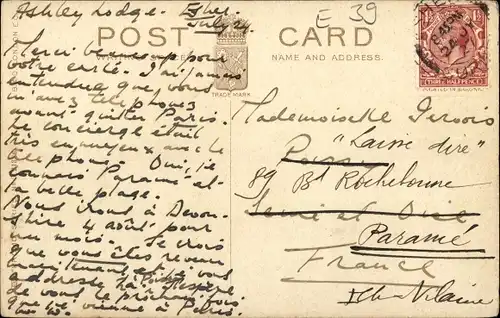 Ashley Lodge. Esher.
July 24
E 39
POST CARD
NAME AND ADDRESS.
TRADE MARK
Merci beaucoup pour
votre carte. J'ai
entendue que vous
m'avez téléphonez
avant quitter Paris.
Le concierge était
très ennuyeux avec le
téléphone. Oui, je
connais Paramé et
la belle plage.
Nous irons à Devon-
shire 4 août pour
un mois. Je crois
que vous êtes revenu
maintenant et je vous
addresse là. J'espère
de vous le prochain fois
que je vienne à Paris.
Mademoiselle Gervois
"Laisse dire"
89 Bd Rochebonne
Seine et Oise
Paramé
France
Ille-Vilaine